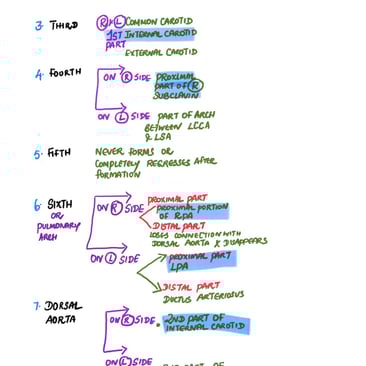 3. THIRD
Ⓡ & Ⓛ COMMON CAROTID
1ST INTERNAL CAROTID
PART
EXTERNAL CAROTID
4. FOORTH
ON Ⓡ SIDE PROXIMAL
PART OF Ⓡ
SUBCLAVIN
ON Ⓛ SIDE PART OF ARCH
BETWEEN LCCA
& LSA
5. FIFTH NEVER FORMS OR
COMPLETELY REGRESSES AFTER
FORMATION
6. SIXTH
OR
PULMONARY
ARCH
ON Ⓡ SIDE
PROXIMAL PART
PROXIMAL PORTION
OF RPA
DISTAL PART
LOSES CONNECTION WITH
DORSAL AORTA & DISAPPEARS
ON Ⓛ SIDE
PROXIMAL PART
LPA
DISTAL PART
DUCTUS ARTERIOSUS
7. DORSAL
AORTA
ON Ⓡ SIDE. 2ND PART OF
INTERNAL CAROTID
ON Ⓛ SIDE